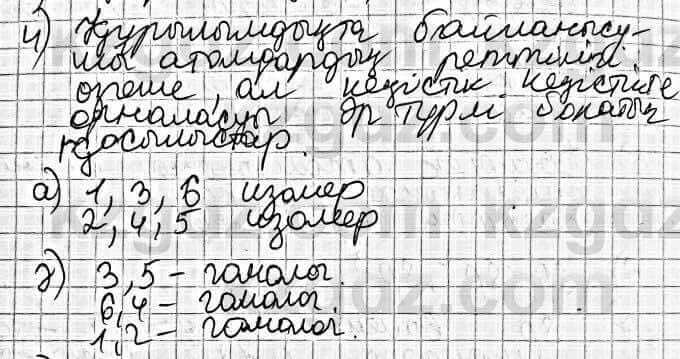 4) Құрылымдықта байланысу-
шы атомдардың реттілігі
өзгеше, ал кеңістік кеңістікте
орналасуы әр түрлі болатын
қосылыстар.
а) 1, 3, 6 изомер
2, 4, 5 изомер
ә) 3, 5 – гомолог.
6, 4 – гомолог.
1, 2 – гомолог.